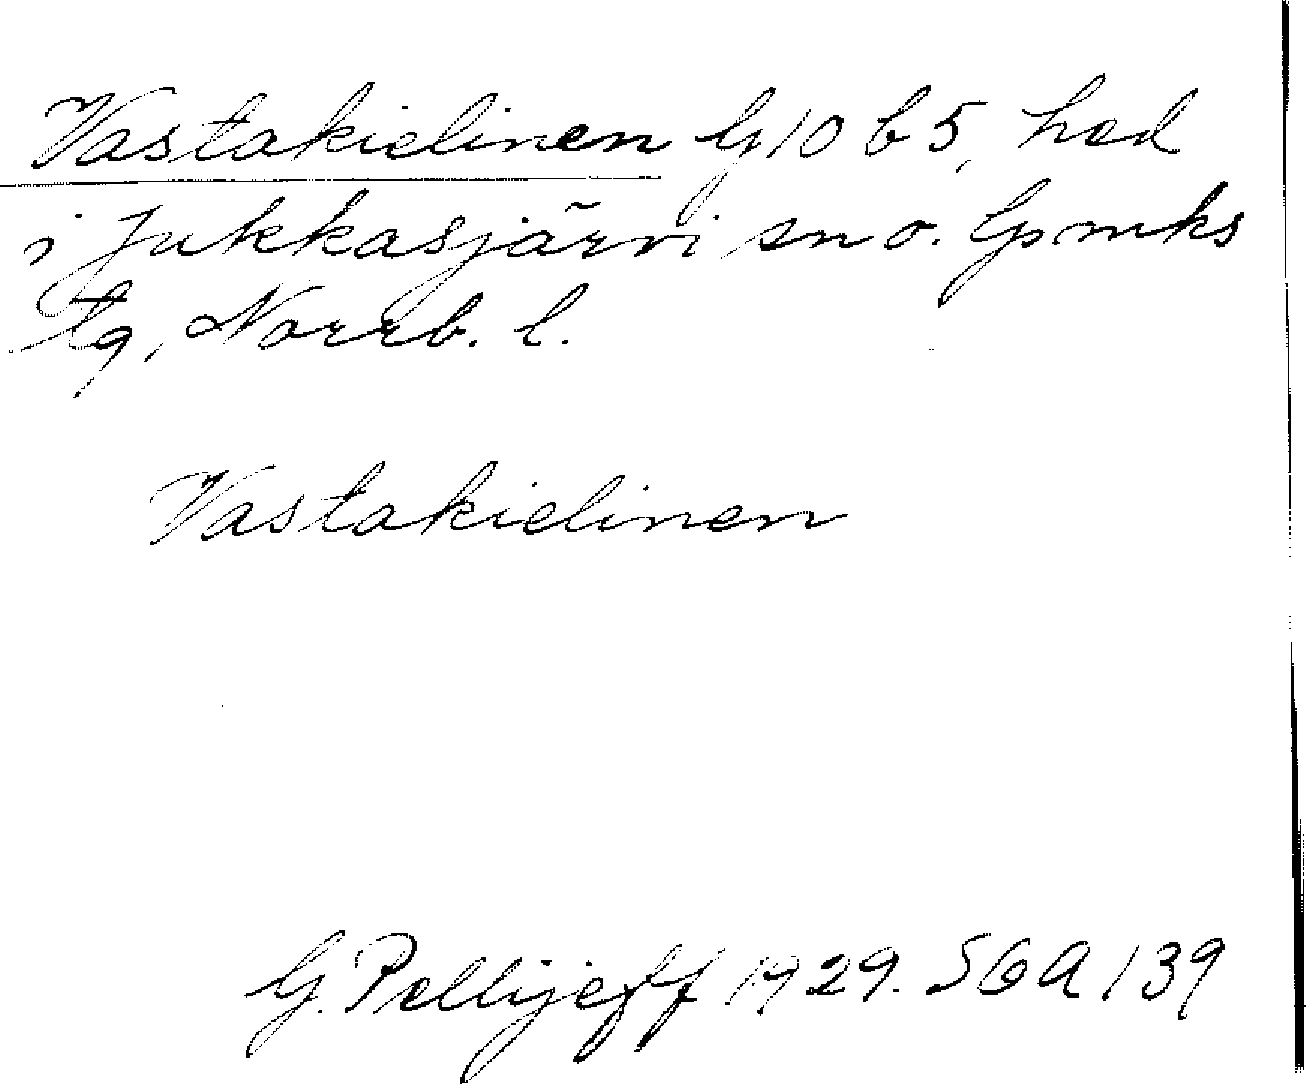 Vastakielinen G10 b5, hed
i Jukkasjärvi sn o. Gpmks
tg, Norrb. l.
Vastakielinen
G. Pellijeff 1929. SGA 139